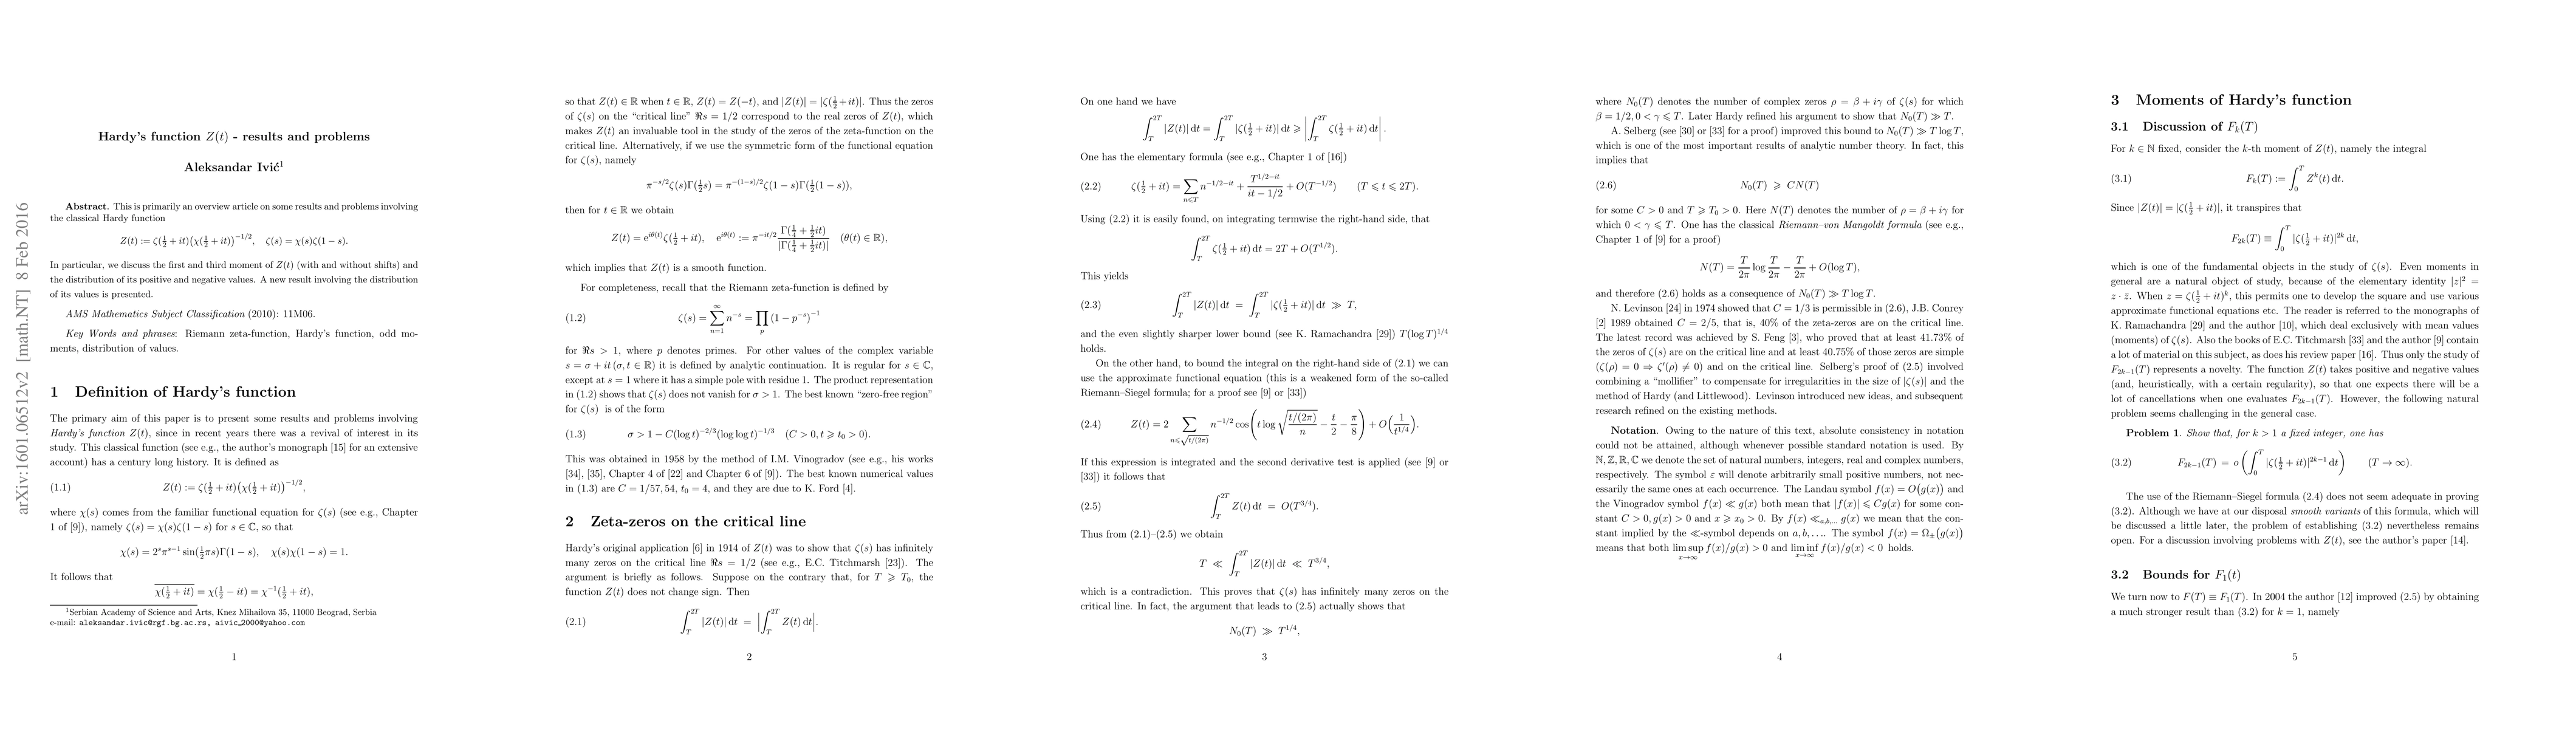 arXiv:1601.06512v2 [math.NT] 8 Feb 2016
Hardy's function Z(t) - results and problems
Aleksandar Ivić¹
Abstract. This is primarily an overview article on some results and problems involving
the classical Hardy function
Z(t) := ζ(½ + it)(χ(½ + it))^{-1/2}, ζ(s) = χ(s)ζ(1 − s).
In particular, we discuss the first and third moment of Z(t) (with and without shifts) and
the distribution of its positive and negative values. A new result involving the distribution
of its values is presented.
AMS Mathematics Subject Classification (2010): 11M06.
Key Words and phrases: Riemann zeta-function, Hardy's function, odd mo-
ments, distribution of values.
1 Definition of Hardy's function
The primary aim of this paper is to present some results and problems involving
Hardy's function Z(t), since in recent years there was a revival of interest in its
study. This classical function (see e.g., the author's monograph [15] for an extensive
account) has a century long history. It is defined as
(1.1) Z(t) := ζ(½ + it)(χ(½ + it))^{-1/2},
where χ(s) comes from the familiar functional equation for ζ(s) (see e.g., Chapter
1 of [9]), namely ζ(s) = χ(s)ζ(1 − s) for s ∈ ℂ, so that
χ(s) = 2^s π^{s−1} sin(½πs)Γ(1 − s), χ(s)χ(1 − s) = 1.
It follows that
\overline{χ(½ + it)} = χ(½ − it) = χ^{-1}(½ + it),
¹Serbian Academy of Science and Arts, Knez Mihailova 35, 11000 Beograd, Serbia
e-mail: aleksandar.ivic@rgf.bg.ac.rs, aivic_2000@yahoo.com
1
so that Z(t) ∈ ℝ when t ∈ ℝ, Z(t) = Z(−t), and |Z(t)| = |ζ(½ + it)|. Thus the zeros
of ζ(s) on the "critical line" ℜs = 1/2 correspond to the real zeros of Z(t), which
makes Z(t) an invaluable tool in the study of the zeros of the zeta-function on the
critical line. Alternatively, if we use the symmetric form of the functional equation
for ζ(s), namely
π^{−s/2}ζ(s)Γ(½s) = π^{−(1−s)/2}ζ(1 − s)Γ(½(1 − s)),
then for t ∈ ℝ we obtain
Z(t) = e^{iθ(t)}ζ(½ + it), e^{iθ(t)} := π^{−it/2} Γ(¼ + ½it)/|Γ(¼ + ½it)| (θ(t) ∈ ℝ),
which implies that Z(t) is a smooth function.
For completeness, recall that the Riemann zeta-function is defined by
(1.2) ζ(s) = ∑_{n=1}^{∞} n^{−s} = ∏_p (1 − p^{−s})^{−1}
for ℜs > 1, where p denotes primes. For other values of the complex variable
s = σ + it (σ, t ∈ ℝ) it is defined by analytic continuation. It is regular for s ∈ ℂ,
except at s = 1 where it has a simple pole with residue 1. The product representation
in (1.2) shows that ζ(s) does not vanish for σ > 1. The best known "zero-free region"
for ζ(s) is of the form
(1.3) σ > 1 − C(log t)^{−2/3}(log log t)^{−1/3} (C > 0, t ⩾ t₀ > 0).
This was obtained in 1958 by the method of I.M. Vinogradov (see e.g., his works
[34], [35], Chapter 4 of [22] and Chapter 6 of [9]). The best known numerical values
in (1.3) are C = 1/57, 54, t₀ = 4, and they are due to K. Ford [4].
2 Zeta-zeros on the critical line
Hardy's original application [6] in 1914 of Z(t) was to show that ζ(s) has infinitely
many zeros on the critical line ℜs = 1/2 (see e.g., E.C. Titchmarsh [23]). The
argument is briefly as follows. Suppose on the contrary that, for T ⩾ T₀, the
function Z(t) does not change sign. Then
(2.1) ∫_T^{2T} |Z(t)| dt = |∫_T^{2T} Z(t) dt|.
2
On one hand we have
∫_T^{2T} |Z(t)| dt = ∫_T^{2T} |ζ(½ + it)| dt ⩾ |∫_T^{2T} ζ(½ + it) dt|.
One has the elementary formula (see e.g., Chapter 1 of [16])
(2.2) ζ(½ + it) = ∑_{n⩽T} n^{−1/2−it} + T^{1/2−it}/(it − 1/2) + O(T^{−1/2}) (T ⩽ t ⩽ 2T).
Using (2.2) it is easily found, on integrating termwise the right-hand side, that
∫_T^{2T} ζ(½ + it) dt = 2T + O(T^{1/2}).
This yields
(2.3) ∫_T^{2T} |Z(t)| dt = ∫_T^{2T} |ζ(½ + it)| dt ≫ T,
and the even slightly sharper lower bound (see K. Ramachandra [29]) T(log T)^{1/4}
holds.
On the other hand, to bound the integral on the right-hand side of (2.1) we can
use the approximate functional equation (this is a weakened form of the so-called
Riemann–Siegel formula; for a proof see [9] or [33])
(2.4) Z(t) = 2 ∑_{n⩽√(t/(2π))} n^{−1/2} cos(t log (√(t/(2π))/n) − t/2 − π/8) + O(1/t^{1/4}).
If this expression is integrated and the second derivative test is applied (see [9] or
[33]) it follows that
(2.5) ∫_T^{2T} Z(t) dt = O(T^{3/4}).
Thus from (2.1)–(2.5) we obtain
T ≪ ∫_T^{2T} |Z(t)| dt ≪ T^{3/4},
which is a contradiction. This proves that ζ(s) has infinitely many zeros on the
critical line. In fact, the argument that leads to (2.5) actually shows that
N₀(T) ≫ T^{1/4},
3
where N₀(T) denotes the number of complex zeros ρ = β + iγ of ζ(s) for which
β = 1/2, 0 < γ ⩽ T. Later Hardy refined his argument to show that N₀(T) ≫ T.
A. Selberg (see [30] or [33] for a proof) improved this bound to N₀(T) ≫ T log T,
which is one of the most important results of analytic number theory. In fact, this
implies that
(2.6) N₀(T) ⩾ CN(T)
for some C > 0 and T ⩾ T₀ > 0. Here N(T) denotes the number of ρ = β + iγ for
which 0 < γ ⩽ T. One has the classical Riemann–von Mangoldt formula (see e.g.,
Chapter 1 of [9] for a proof)
N(T) = T/2π log T/2π − T/2π + O(log T),
and therefore (2.6) holds as a consequence of N₀(T) ≫ T log T.
N. Levinson [24] in 1974 showed that C = 1/3 is permissible in (2.6), J.B. Conrey
[2] 1989 obtained C = 2/5, that is, 40% of the zeta-zeros are on the critical line.
The latest record was achieved by S. Feng [3], who proved that at least 41.73% of
the zeros of ζ(s) are on the critical line and at least 40.75% of those zeros are simple
(ζ(ρ) = 0 ⇒ ζ′(ρ) ≠ 0) and on the critical line. Selberg's proof of (2.5) involved
combining a "mollifier" to compensate for irregularities in the size of |ζ(s)| and the
method of Hardy (and Littlewood). Levinson introduced new ideas, and subsequent
research refined on the existing methods.
Notation. Owing to the nature of this text, absolute consistency in notation
could not be attained, although whenever possible standard notation is used. By
ℕ, ℤ, ℝ, ℂ we denote the set of natural numbers, integers, real and complex numbers,
respectively. The symbol ε will denote arbitrarily small positive numbers, not nec-
essarily the same ones at each occurrence. The Landau symbol f(x) = O(g(x)) and
the Vinogradov symbol f(x) ≪ g(x) both mean that |f(x)| ⩽ Cg(x) for some con-
stant C > 0, g(x) > 0 and x ⩾ x₀ > 0. By f(x) ≪_{a,b,...} g(x) we mean that the con-
stant implied by the ≪-symbol depends on a, b, .... The symbol f(x) = Ω_±(g(x))
means that both lim sup_{x→∞} f(x)/g(x) > 0 and lim inf_{x→∞} f(x)/g(x) < 0 holds.
4
3 Moments of Hardy's function
3.1 Discussion of F_k(T)
For k ∈ ℕ fixed, consider the k-th moment of Z(t), namely the integral
(3.1) F_k(T) := ∫_0^T Z^k(t) dt.
Since |Z(t)| = |ζ(½ + it)|, it transpires that
F_{2k}(T) ≡ ∫_0^T |ζ(½ + it)|^{2k} dt,
which is one of the fundamental objects in the study of ζ(s). Even moments in
general are a natural object of study, because of the elementary identity |z|² =
z · z̄. When z = ζ(½ + it)^k, this permits one to develop the square and use various
approximate functional equations etc. The reader is referred to the monographs of
K. Ramachandra [29] and the author [10], which deal exclusively with mean values
(moments) of ζ(s). Also the books of E.C. Titchmarsh [33] and the author [9] contain
a lot of material on this subject, as does his review paper [16]. Thus only the study of
F_{2k−1}(T) represents a novelty. The function Z(t) takes positive and negative values
(and, heuristically, with a certain regularity), so that one expects there will be a
lot of cancellations when one evaluates F_{2k−1}(T). However, the following natural
problem seems challenging in the general case.
Problem 1. Show that, for k > 1 a fixed integer, one has
(3.2) F_{2k−1}(T) = o(∫_0^T |ζ(½ + it)|^{2k−1} dt) (T → ∞).
The use of the Riemann–Siegel formula (2.4) does not seem adequate in proving
(3.2). Although we have at our disposal smooth variants of this formula, which will
be discussed a little later, the problem of establishing (3.2) nevertheless remains
open. For a discussion involving problems with Z(t), see the author's paper [14].
3.2 Bounds for F₁(t)
We turn now to F(T) ≡ F₁(T). In 2004 the author [12] improved (2.5) by obtaining
a much stronger result than (3.2) for k = 1, namely
5